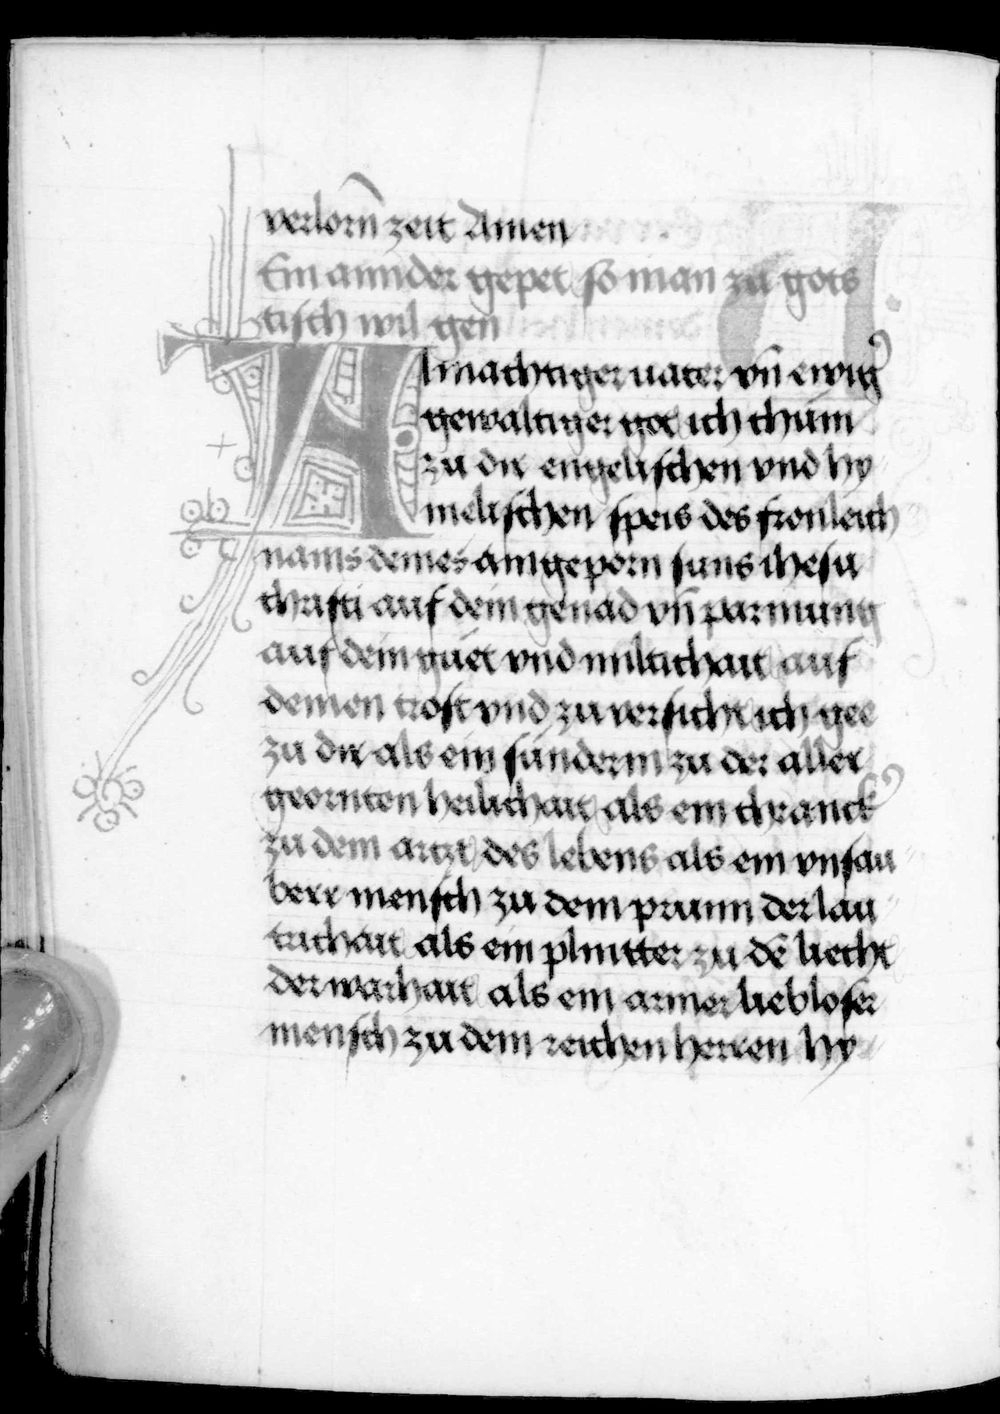 verlorñ zeit Amen
Ein annder gepet so man zu gots
tisch wil gen
Almachtiger vater vñ ewigʼ
gewaltiger got ich chüm
zu dir engelischen vnd hy
melischen speis des fronleich
nams deines aingeporn suns ihesu
christi auf dein genad vñ parmung
auf dein güet vnd miltichait auf
deinen trost vnd zuuersicht ich gee
zu dir als ein sünderin zu der aller
geornten heilichait als ein chranckʼ
zu dem artzt des lebens als ein vnsau
berr mensch zu dem prunn der lau
trichait als ein plintter zu dē liecht
der warhait als ein armer liebloser
mensch zu dem reichen herren hy